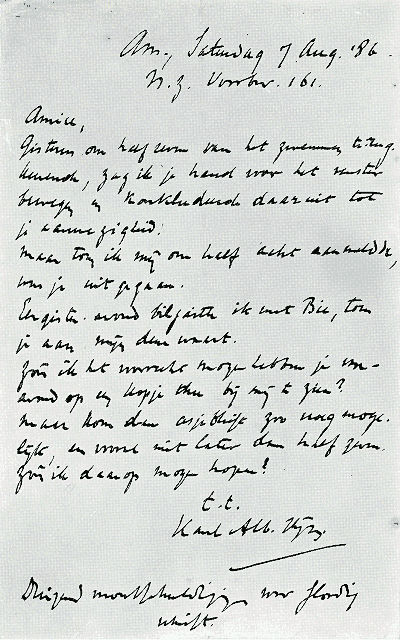 Am., Saturdag 7 Aug. '86.
N.Z. Voorbw. 161.
Amice,
Gisteren om half zeven van het zwemmen terug-
keerende, zag ik je hand voor het venster
bewegen en konkludeerde daaruit tot
je aanwezigheid.
Maar toen ik mij om half acht aanmeldde,
was je uitgegaan.
Eergister avond biljartte ik met Bie, toen
je aan mijn deur waart.
Zoû ik het voorrecht mogen hebben je van-
avond op een kopje thee bij mij te zien?
Maar kom dan asjeblieft zoo vroeg moge-
lijk, en vooral niet later dan half zeven.
Zoû ik daarop mogen hopen?
t.t.
Karel Alb.
Dringend verontschuldiging voor slordig
schrift.